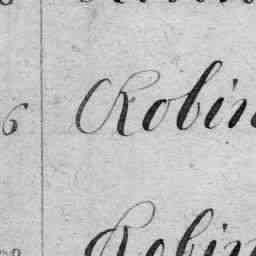 6 Robin
Robin